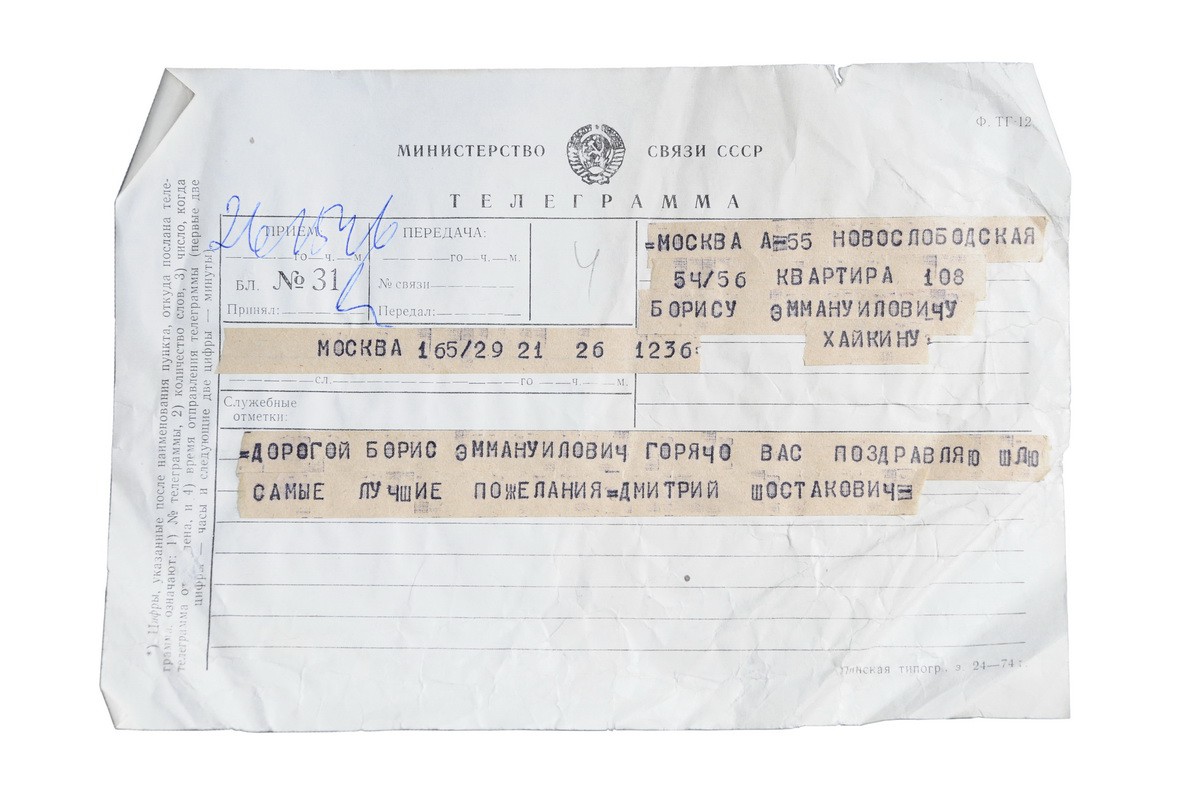 Ф. ТГ-12
МИНИСТЕРСТВО СВЯЗИ СССР
ТЕЛЕГРАММА
ПРИЕМ: ПЕРЕДАЧА:
го—ч.—м. го—ч.—м.
БЛ. № 31 № связи
Принял: Передал:
4
=МОСКВА А=55 НОВОСЛОБОДСКАЯ
54/56 КВАРТИРА 108
БОРИСУ ЭММАНУИЛОВИЧУ
ХАЙКИНУ=
МОСКВА 165/29 21 26 1236=
сл. го ч. м.
Служебные
отметки:
=ДОРОГОЙ БОРИС ЭММАНУИЛОВИЧ ГОРЯЧО ВАС ПОЗДРАВЛЯЮ ШЛЮ
САМЫЕ ЛУЧШИЕ ПОЖЕЛАНИЯ=ДМИТРИЙ ШОСТАКОВИЧ=
типогр. з. 24—74 г.
*) Цифры, указанные после наименования пункта, откуда послана теле-
грамма, означают: 1) № телеграммы, 2) количество слов, 3) число, когда
телеграмма и 4) время отправления телеграммы (первые две
цифры — часы и следующие две цифры — минуты)